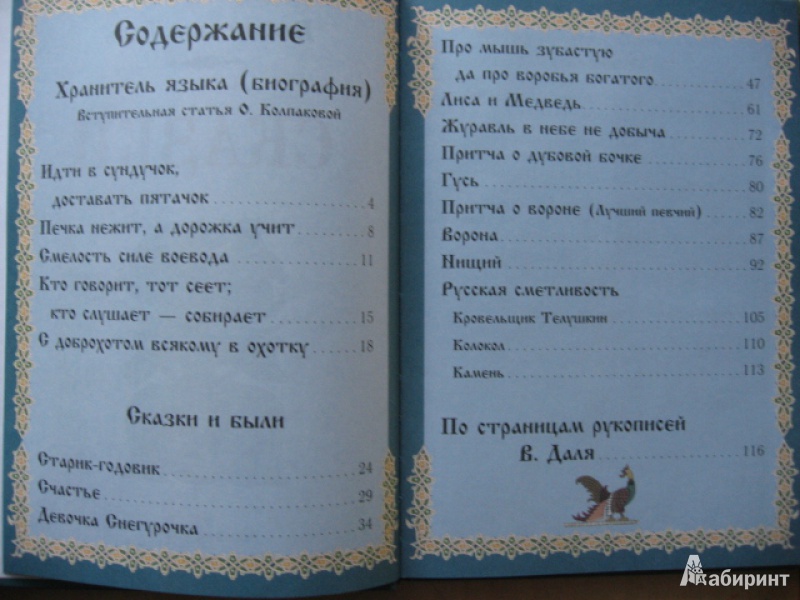 Содержание
Хранитель языка (биография)
Вступительная статья О. Колпаковой
Идти в сундучок,
доставать пятачок 4
Печка нежит, а дорожка учит 8
Смелость силе воевода 11
Кто говорит, тот сеет;
кто слушает — собирает 15
С доброхотом всякому в охотку 18
Сказки и были
Старик-годовик 24
Счастье 29
Девочка Снегурочка 34
Про мышь зубастую
да про воробья богатого 47
Лиса и Медведь 61
Журавль в небе не добыча 72
Притча о дубовой бочке 76
Гусь 80
Притча о вороне (Лучший певчий) 82
Ворона 87
Нищий 92
Русская сметливость
Кровельщик Телушкин 105
Колокол 110
Камень 113
По страницам рукописей
В. Даля 116
Лабиринт